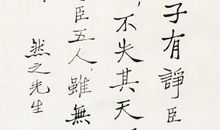 子有諍臣
不失其天
臣五人雖無
然之先生